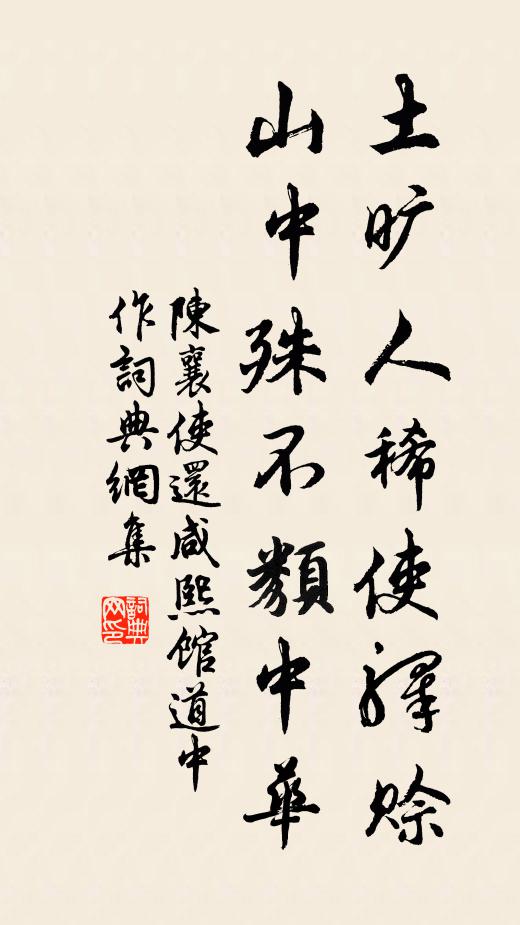 土旷人稀使驛賒
山中殊不類中華
陳襄使還咸熙館道中
作詞典網集
詞典
网印